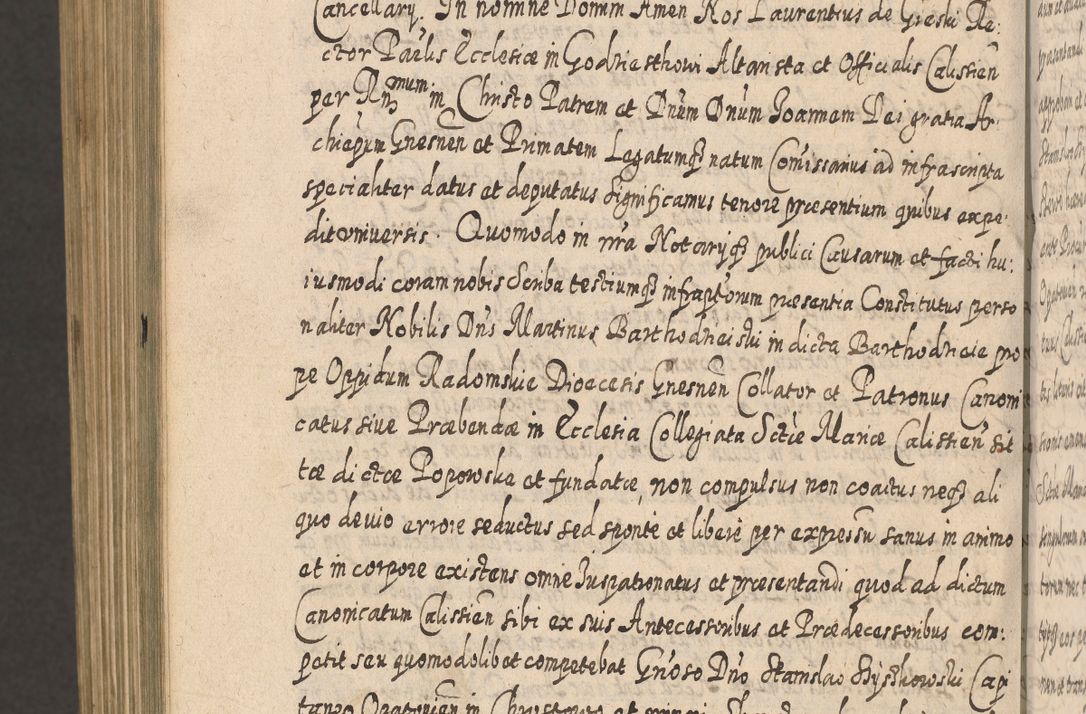 Cancellary. In nomine Domini Amen Nos Laurentius de Gieski Re:
ctor Paelis Ecclesiæ in Godziesthowi Altarista et Officialis Calissien
per Rn̄mum in Christo Patrem et Dnum Dnum Joannem Dei gratia Ar
chiepum Gnesnen et Primatem Legatumq natum Comissarius ad infrascripta
specialiter datus et deputatus Significamus tenore præsentium quibus expe:
dit universis. Quomodo in nra Notaryq publici Causarum et facti hu:
iusmodi coram nobis Scriba testiumq infraptorum præsentia Constitutus perso
naliter Nobilis Dns Martinus Barthodzieiski in dicta Barthodzieie pro
pe Oppidum Radomskie Dioecesis Gnesnen Collator et Patronus Canoni
catus sive Præbendæ in Ecclesia Collegiata Sctæ Mariæ Calissien sit
tæ dictæ Poporoska et fundatæ, non compulsus non coactus neq ali
quo devio errore seductus sed sponte et libere per expressu sanus in animo
et in corpore existens omne Juspatronatus et præsentandi quod ad dictum
Canonicatum Calissien sibi ex suis Antecessoribus et Prædecessoribus com:
petit seu quomodolibet competebat Gnoso Dno Stanislao Szyszkowski Capi
taneo in et